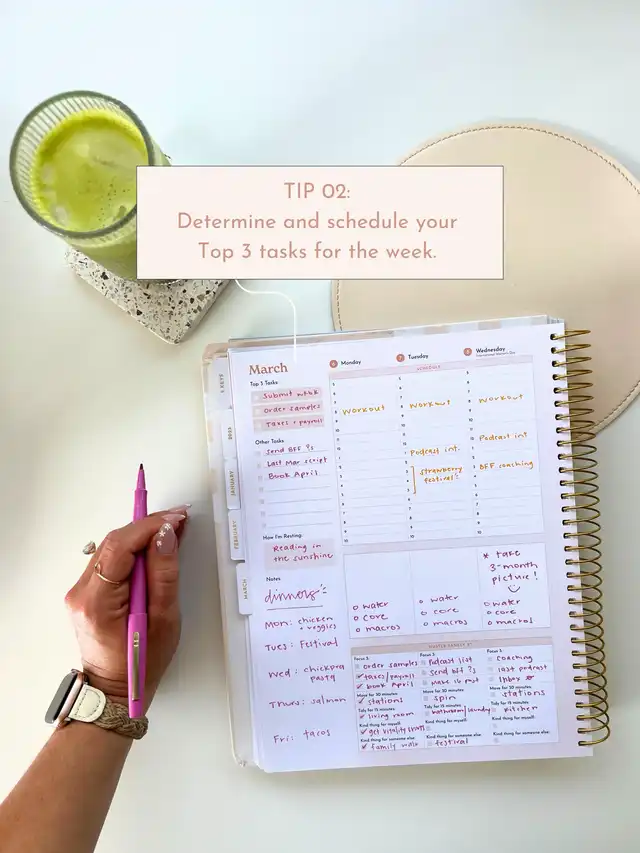 TIP 02:
Determine and schedule your
Top 3 tasks for the week.
March
Top 3 Tasks:
Submit wkbk
Order samples
Taxes + payroll
Other Tasks
Send BFF ?s
Last Mar script
Book April
How I'm Resting:
Reading in
the sunshine
Notes
dinners:
Mon: chicken
+ veggies
Tues: Festival
Wed: chickpea
pasta
Thurs: salmon
Fri: tacos
6 Monday
7 Tuesday
8 Wednesday
International Women's Day
SCHEDULE
Workout
Workout
Workout
Podcast int.
Podcast int
strawberry
festival!
BFF coaching
* take
3-month
picture!
o water
o core
o macros
o water
o core
o macros
o water
o core
o macros
Focus 3:
order samples
taxes/payroll
book April
Move for 30 minutes
stations
Tidy for 15 minutes
living room
Kind thing for myself:
Kind thing for someone else:
family walk
Focus 3:
Podcast list
Send BFF ?s
Make IG post
Move for 30 minutes
spin
Tidy for 15 minutes
bathroom/laundry
Kind thing for myself:
Kind thing for someone else:
festival
Focus 3:
coaching
last podcast
Inbox
Move for 30 minutes
stations
Tidy for 15 minutes
kitchen
Kind thing for myself:
Kind thing for someone else:
2023
JANUARY
FEBRUARY
MARCH